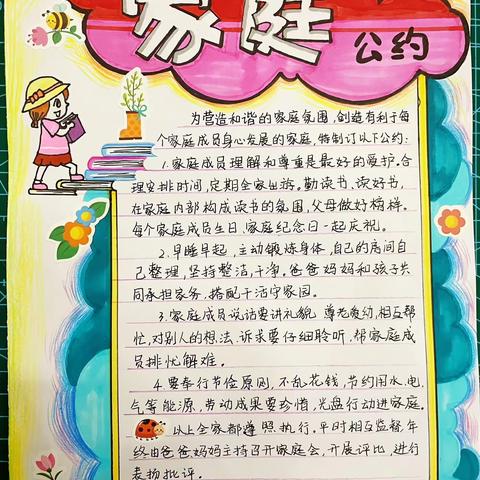 家庭
公约
为营造和谐的家庭氛围,创造有利于每
个家庭成员身心发展的家庭,特制订以下公约:
1.家庭成员理解和尊重是最好的爱护。合
理安排时间,定期全家出游。勤读书,读好书,
在家庭内部构成读书的氛围,父母做好榜样。
每个家庭成员生日、家庭纪念日一起庆祝。
2.早睡早起,主动锻炼身体,自己的房间自
己整理,坚持整洁,干净。爸爸妈妈和孩子共
同承担家务,搭配干活守家园。
3.家庭成员说话要讲礼貌 尊老爱幼,相互帮
忙,对别人的想法、诉求要仔细聆听,帮家庭成
员排忧解难。
4.要奉行节俭原则,不乱花钱,节约用水、电、
气等能源,劳动成果要珍惜,光盘行动进家庭。
以上全家都遵照执行。平时相互监督,年
终由爸爸妈妈主持召开家庭会,开展评比,进行
表扬批评。